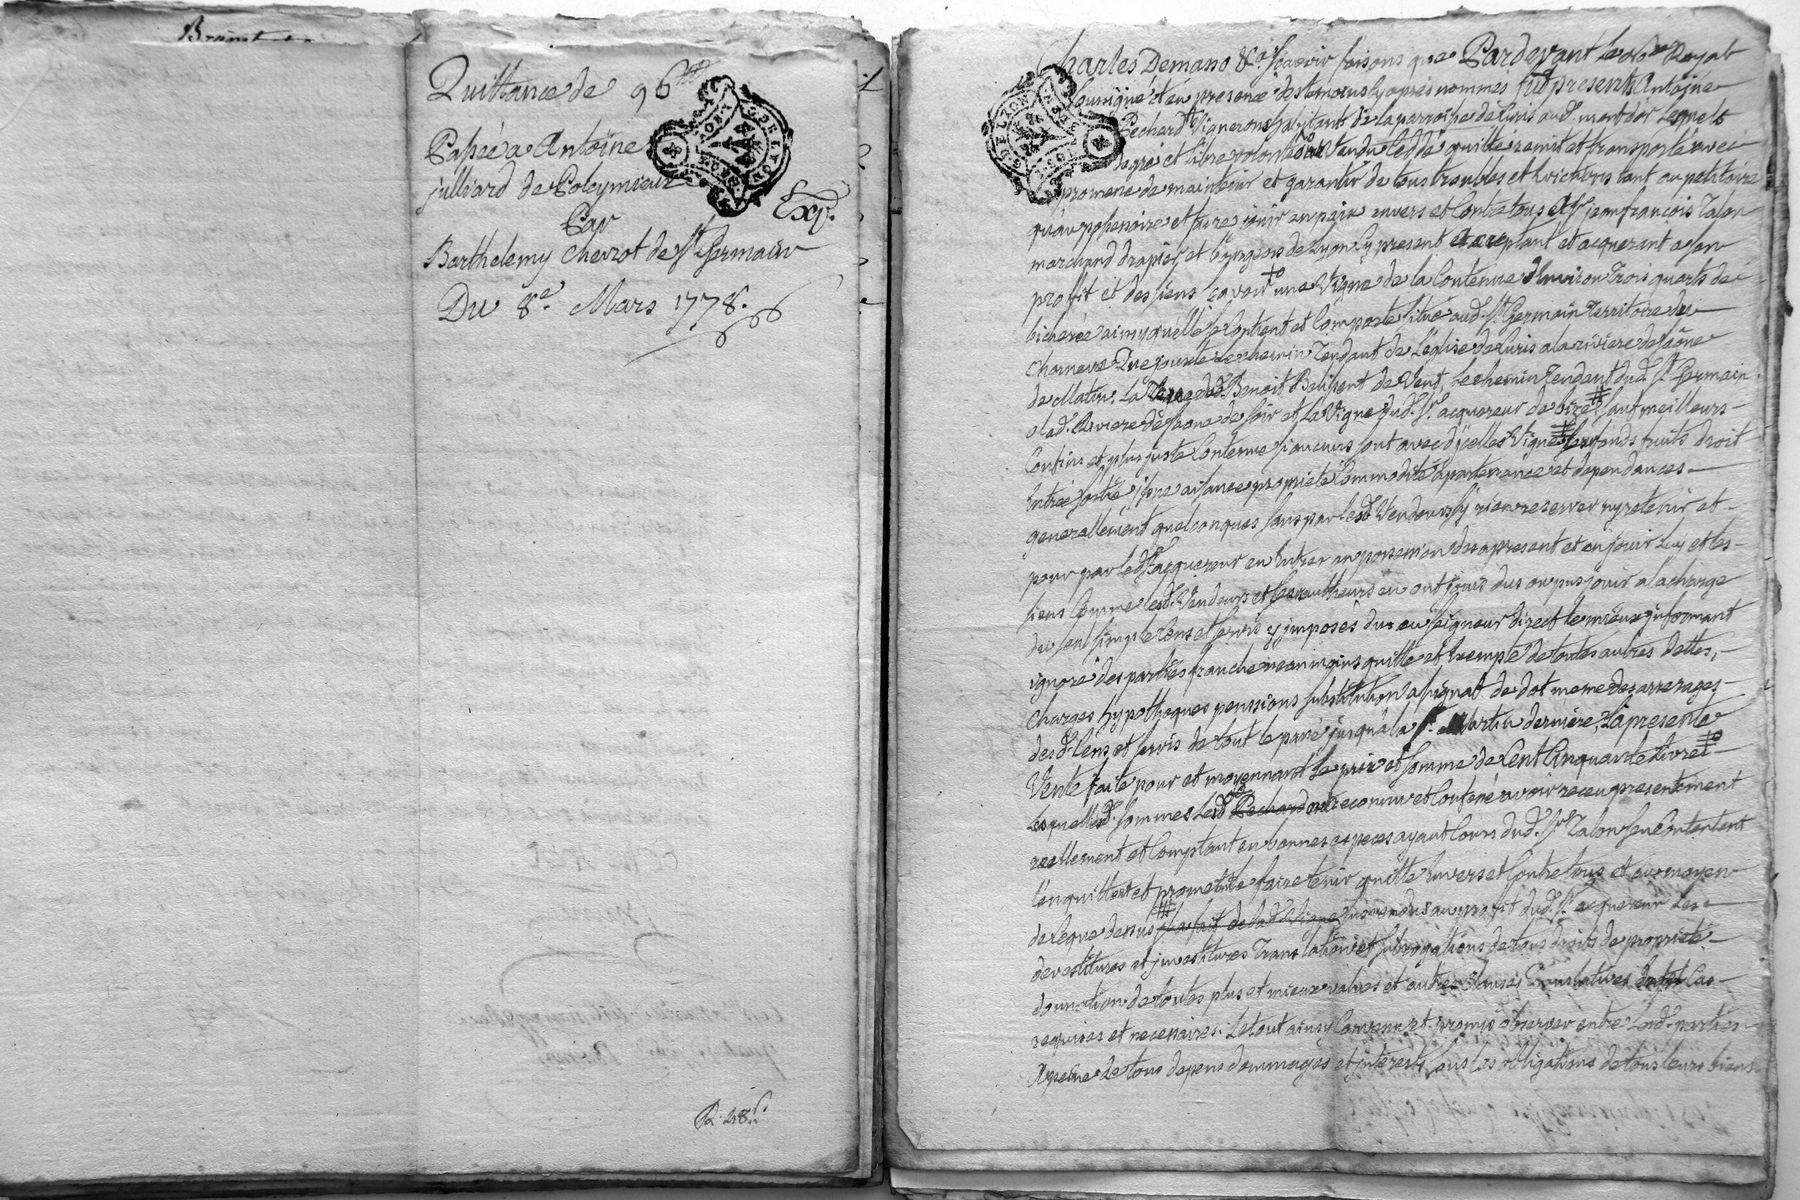 Quittance de 96
Passée a Antoine
julliard de Poleymieux
Par
Exp.
Barthelemy Cherzot de St Germain
Du 8e. Mars 1778.
GDELYON
Charles Demano &a scavoir faisons que Pardevant le Royal
soussigné et en presence des temoins cy apres nommés fut present Antoine
Pechard Vigneron habitant de la parroisse de Curis aud. mont d'or Lequel
de gré et libre volonté a Vendu ceddé quitté remit et transporté avec
promesse de maintenir et garantir de tous troubles et evictions tant au petitoire
qu'au possessoire et faire jouir en paix envers et Contre tous a Sr jean françois Talon
marchand drapier et Bourgeois de Lyon cy present acceptant et acquerant a son
proffit et des siens sçavoir une Vigne de la Contenue d'environ Trois quarts de
bicherée ainsy qu'elle se Contient et Comporte située aud. St Germain Territoire des
Charneve Que jouxte Le chemin Tendant de L'église de Curis a la riviere de Saône
de Matin, La Terre de Benoit de Vent, Le chemin Tendant dud. St Germain
a lad. Riviere de Saone de soir et La Vigne dud. Sr acquereur de bize sauf meilleurs
Confins et plus juste Contenue si aucuns sont avec d'icelles Vigne fonds fruits droit
Entrée sortie aisance proprieté Commodité apartenance et dependances
generallement quelconques sans par lesd. Vendeurs s'y rien reserver ny retenir et
pour par led. Sr acquereur en Entrer en possession des apresent et en jouir Luy et les
siens Comme lesd. Vendeurs et autheurs en ont jouis dus ou pus jouir a la charge
du seul simple Cens et servis y imposés dus au seigneur direct le mieux informant
ignoré des parties franche neanmoins quitte et Exempte de toutes autres dettes,
Charges hypotheques pensions substitution assignat de dot meme des arrerages
desd. Cens et servis de tout le passé jusqu'a la St. Martin derniere, La presente
Vente faite pour et moyennant le prix et somme de Cent Cinquante Livres
Lesquelles sommes led. Pechard a reconnu et Confessé avoir receu presentement
reellement et Comptant en bonnes especes ayant Cours dud. Sr Talon s'en Contentent
l'en quittent et promettent faire tenir quitte Envers et Contre tous et au moyen
de ce que dessus au profit dud. Sr acquereur Les
devestitures et investitures Translation et subrogations de tous droits de proprieté
donnation de toutes plus et mieux values et autres Clauses Translatives Cas
requises et necessaires. Le tout ainsy Convenu et promis observer entre Lesd. parties
A peine de tous depens dommages et interests sous les obligations de tous leurs biens